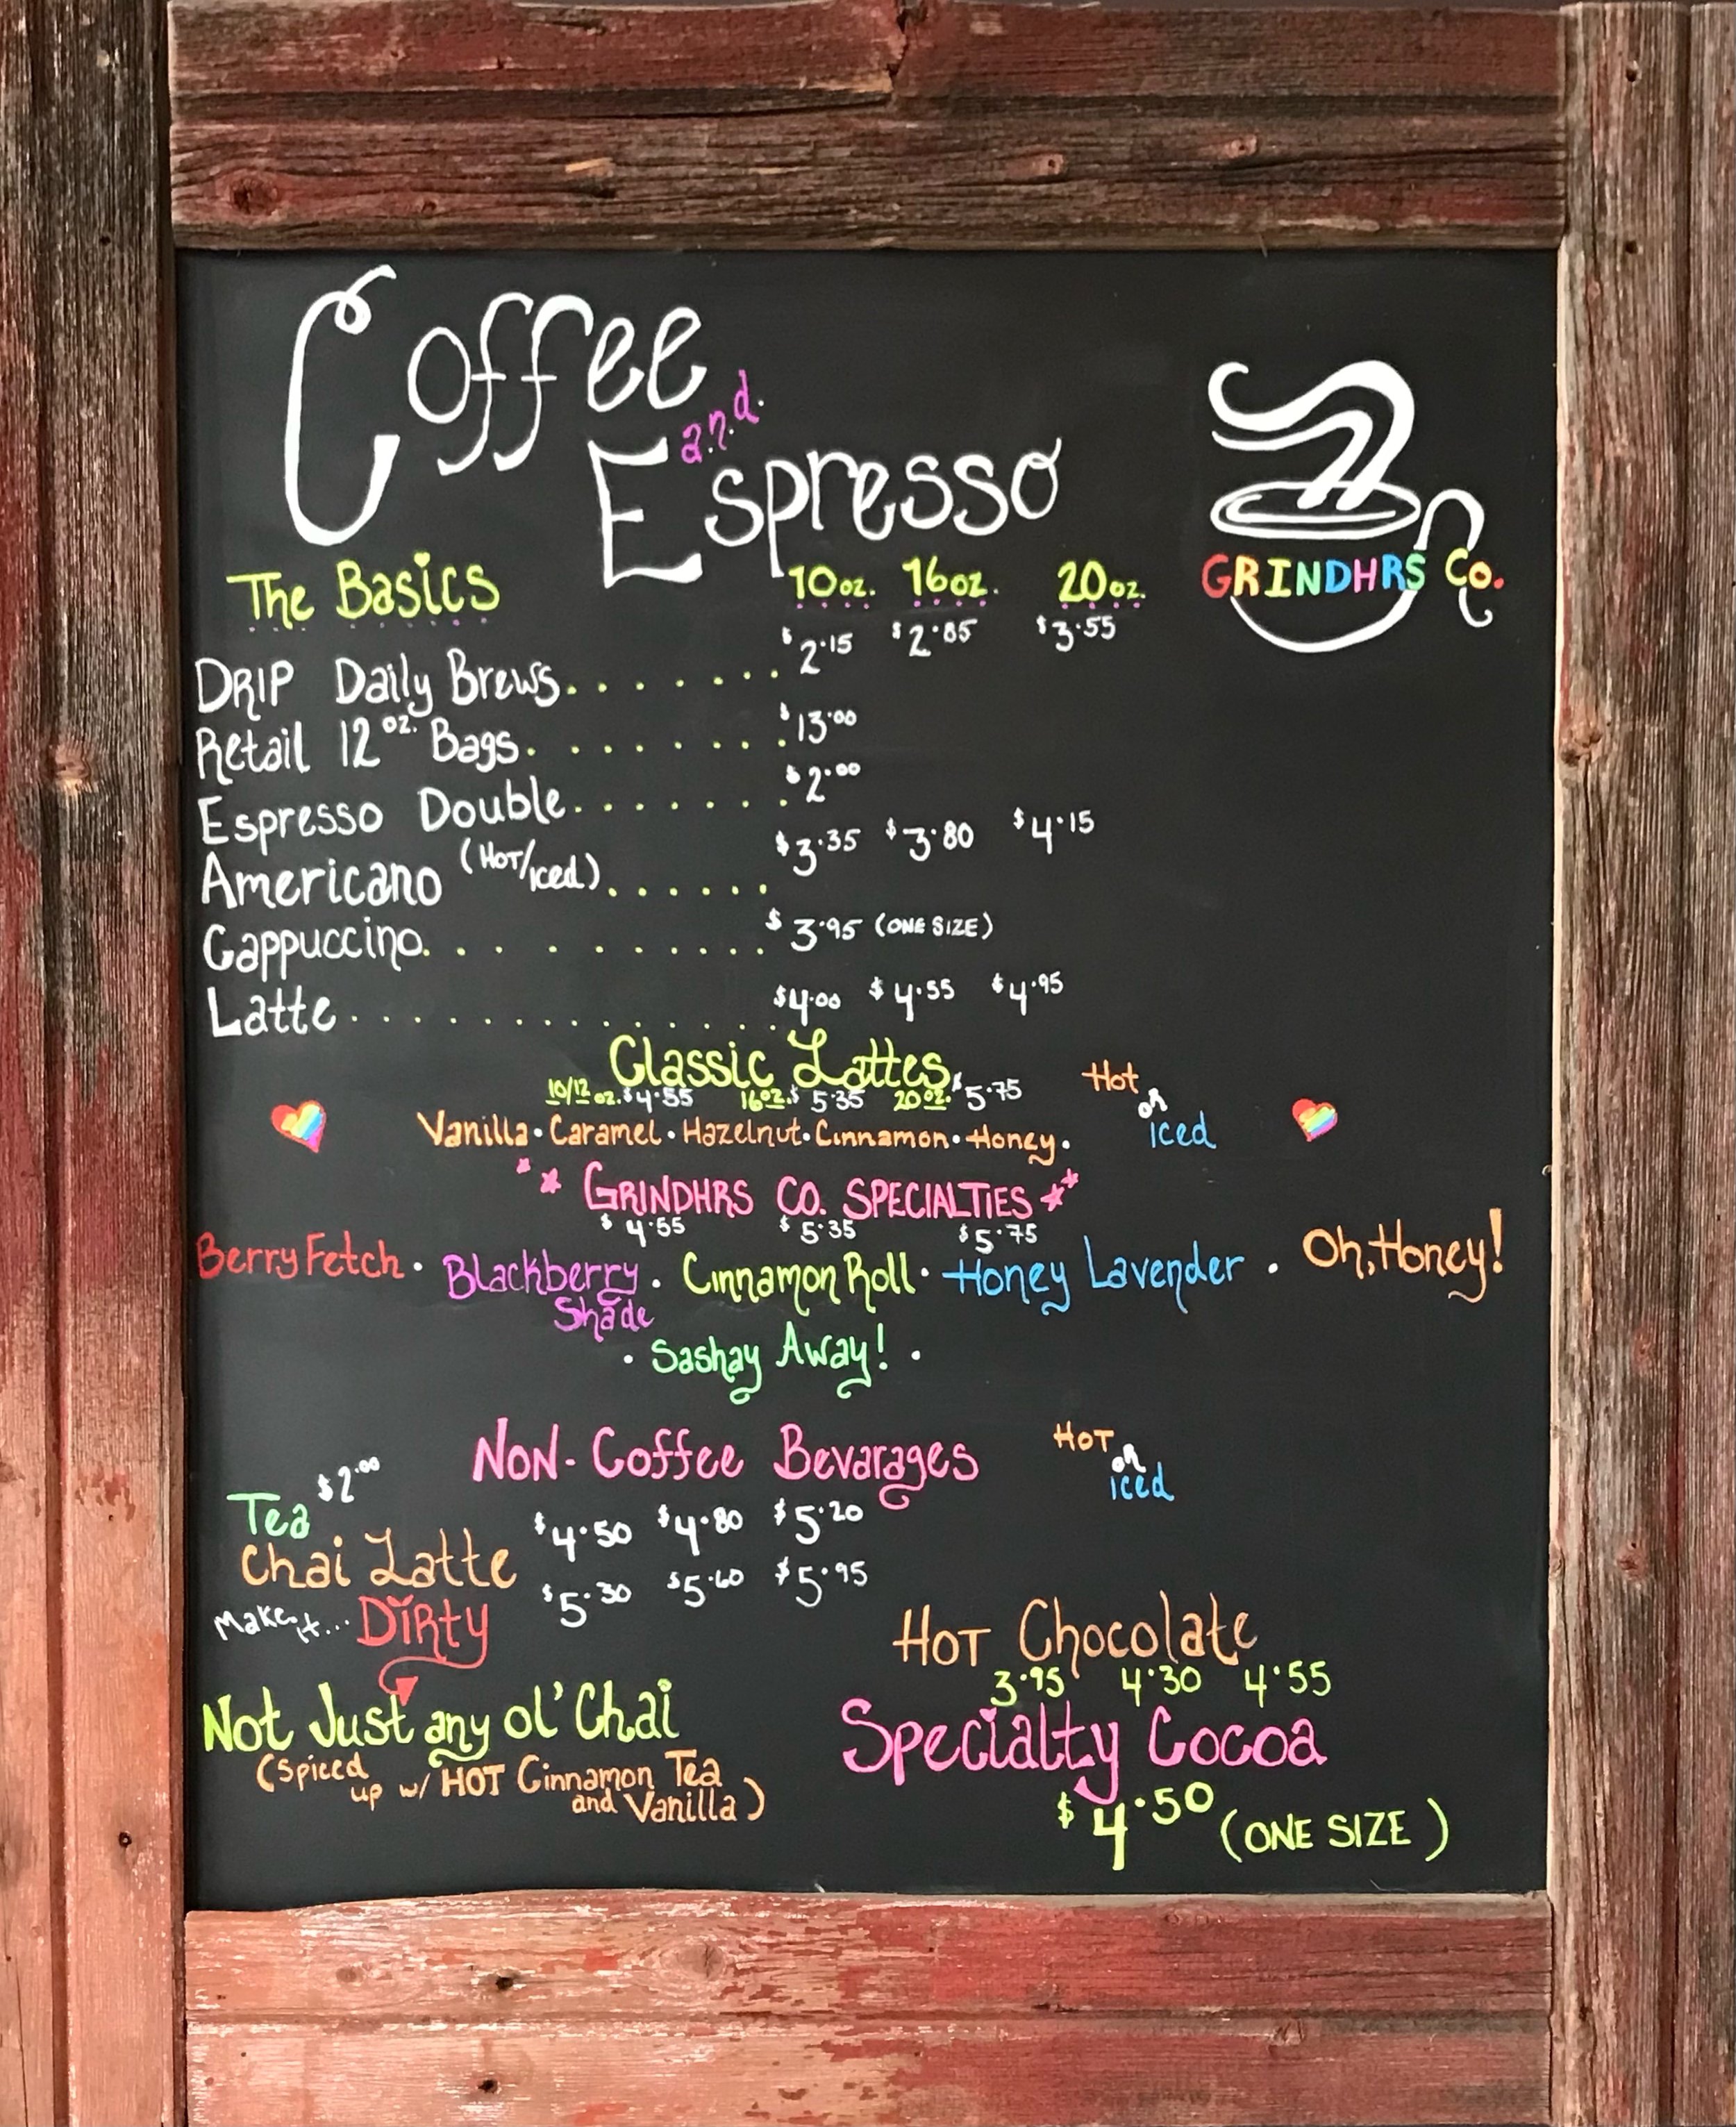 Coffee
and
Espresso
GRINDHRS Co.
The Basics 10oz. 16oz. 20oz.
DRIP Daily Brews........ $2.15 $2.85 $3.55
Retail 12oz. Bags......... $13.00
Espresso Double........ $2.00
Americano (Hot/Iced)....... $3.35 $3.80 $4.15
Cappuccino........... $3.95 (ONE SIZE)
Latte............... $4.00 $4.55 $4.95
Classic Lattes
10/12 oz. $4.55 16oz. $5.35 20oz. $5.75
Hot or iced
Vanilla • Caramel • Hazelnut • Cinnamon • Honey •
GRINDHRS CO. SPECIALTIES
$4.55 $5.35 $5.75
Berry Fetch • Blackberry Shade • Cinnamon Roll • Honey Lavender • Oh, Honey!
• Sashay Away! •
NON-Coffee Bevarages
HOT or iced
Tea $2.00
Chai Latte $4.50 $4.80 $5.20
Make it... DiRty $5.30 $5.60 $5.95
Not Just any ol' Chai
(Spiced up w/ HOT Cinnamon Tea and Vanilla)
HOT Chocolate
3.95 4.30 4.55
Specialty Cocoa
$4.50 (ONE SIZE)